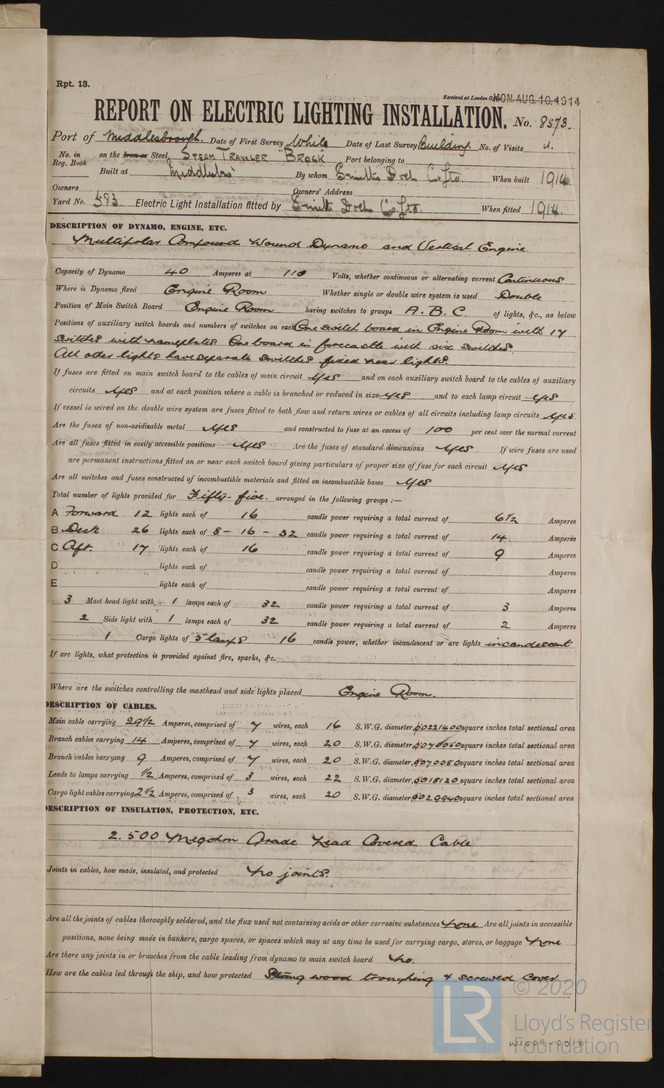 Rpt. 13.
Received at London Office MON. AUG. 10. 1914
REPORT ON ELECTRIC LIGHTING INSTALLATION. No. 8573.
Port of Middlesbrough. Date of First Survey While Date of Last Survey Building. No. of Visits
No. in Reg. Book on the Iron or Steel Steam Trawler Brock Port belonging to
Built at Middlesbro' By whom Smiths Dock Co Ltd When built 1914
Owners Owners' Address
Yard No. 593 Electric Light Installation fitted by Smiths Dock Co Ltd. When fitted 1914.
DESCRIPTION OF DYNAMO, ENGINE, ETC.
Multipolar Compound Wound Dynamo and Vertical Engine
Capacity of Dynamo 40 Amperes at 110 Volts, whether continuous or alternating current Continuous
Where is Dynamo fixed Engine Room Whether single or double wire system is used Double
Position of Main Switch Board Engine Room having switches to groups A. B. C of lights, &c., as below
Positions of auxiliary switch boards and numbers of switches on each One switch board in Engine Room with 17
switches with nameplates One board in forecastle with six switches.
All other lights have separate switches fixed near lights.
If fuses are fitted on main switch board to the cables of main circuit yes and on each auxiliary switch board to the cables of auxiliary
circuits yes and at each position where a cable is branched or reduced in size yes and to each lamp circuit yes
If vessel is wired on the double wire system are fuses fitted to both flow and return wires or cables of all circuits including lamp circuits yes
Are the fuses of non-oxidizable metal yes and constructed to fuse at an excess of 100 per cent over the normal current
Are all fuses fitted in easily accessible positions yes Are the fuses of standard dimensions yes If wire fuses are used
are permanent instructions fitted on or near each switch board giving particulars of proper size of fuse for each circuit yes
Are all switches and fuses constructed of incombustible materials and fitted on incombustible bases yes
Total number of lights provided for Fifty-five. arranged in the following groups :—
A Forward 12 lights each of 16 candle power requiring a total current of 6 1/2 Amperes
B Deck 26 lights each of 8 - 16 - 32 candle power requiring a total current of 14 Amperes
C Aft. 17 lights each of 16 candle power requiring a total current of 9 Amperes
D lights each of candle power requiring a total current of Amperes
E lights each of candle power requiring a total current of Amperes
3 Mast head light with 1 lamps each of 32 candle power requiring a total current of 3 Amperes
2 Side light with 1 lamps each of 32 candle power requiring a total current of 2 Amperes
1 Cargo lights of 5 lamps 16 candle power, whether incandescent or arc lights incandescent
If arc lights, what protection is provided against fire, sparks, &c.
Where are the switches controlling the masthead and side lights placed Engine Room.
DESCRIPTION OF CABLES.
Main cable carrying 29 1/2 Amperes, comprised of 7 wires, each 16 S.W.G. diameter, .0221400 square inches total sectional area
Branch cables carrying 14 Amperes, comprised of 7 wires, each 20 S.W.G. diameter, .0070050 square inches total sectional area
Branch cables carrying 9 Amperes, comprised of 7 wires, each 20 S.W.G. diameter, .0070050 square inches total sectional area
Leads to lamps carrying 1/2 Amperes, comprised of 3 wires, each 22 S.W.G. diameter, .0018120 square inches total sectional area
Cargo light cables carrying 2 1/2 Amperes, comprised of 3 wires, each 20 S.W.G. diameter, .0029940 square inches total sectional area
DESCRIPTION OF INSULATION, PROTECTION, ETC.
2.500 Megohm Grade Lead Covered Cable
Joints in cables, how made, insulated, and protected No joints.
Are all the joints of cables thoroughly soldered, and the flux used not containing acids or other corrosive substances None Are all joints in accessible
positions, none being made in bunkers, cargo spaces, or spaces which may at any time be used for carrying cargo, stores, or baggage None
Are there any joints in or branches from the cable leading from dynamo to main switch board No.
How are the cables led through the ship, and how protected Strong wood troughing & screwed cover
© 2020
LR
Lloyd's Register
Foundation
W1009-0016